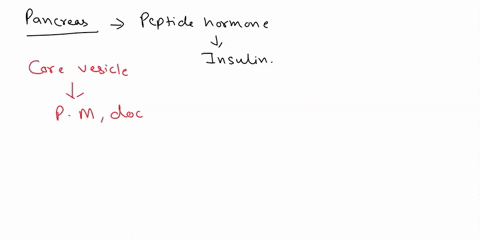 Pancreas → Peptide hormone
↓
Insulin.
Core vesicle
↓
P.M, doc